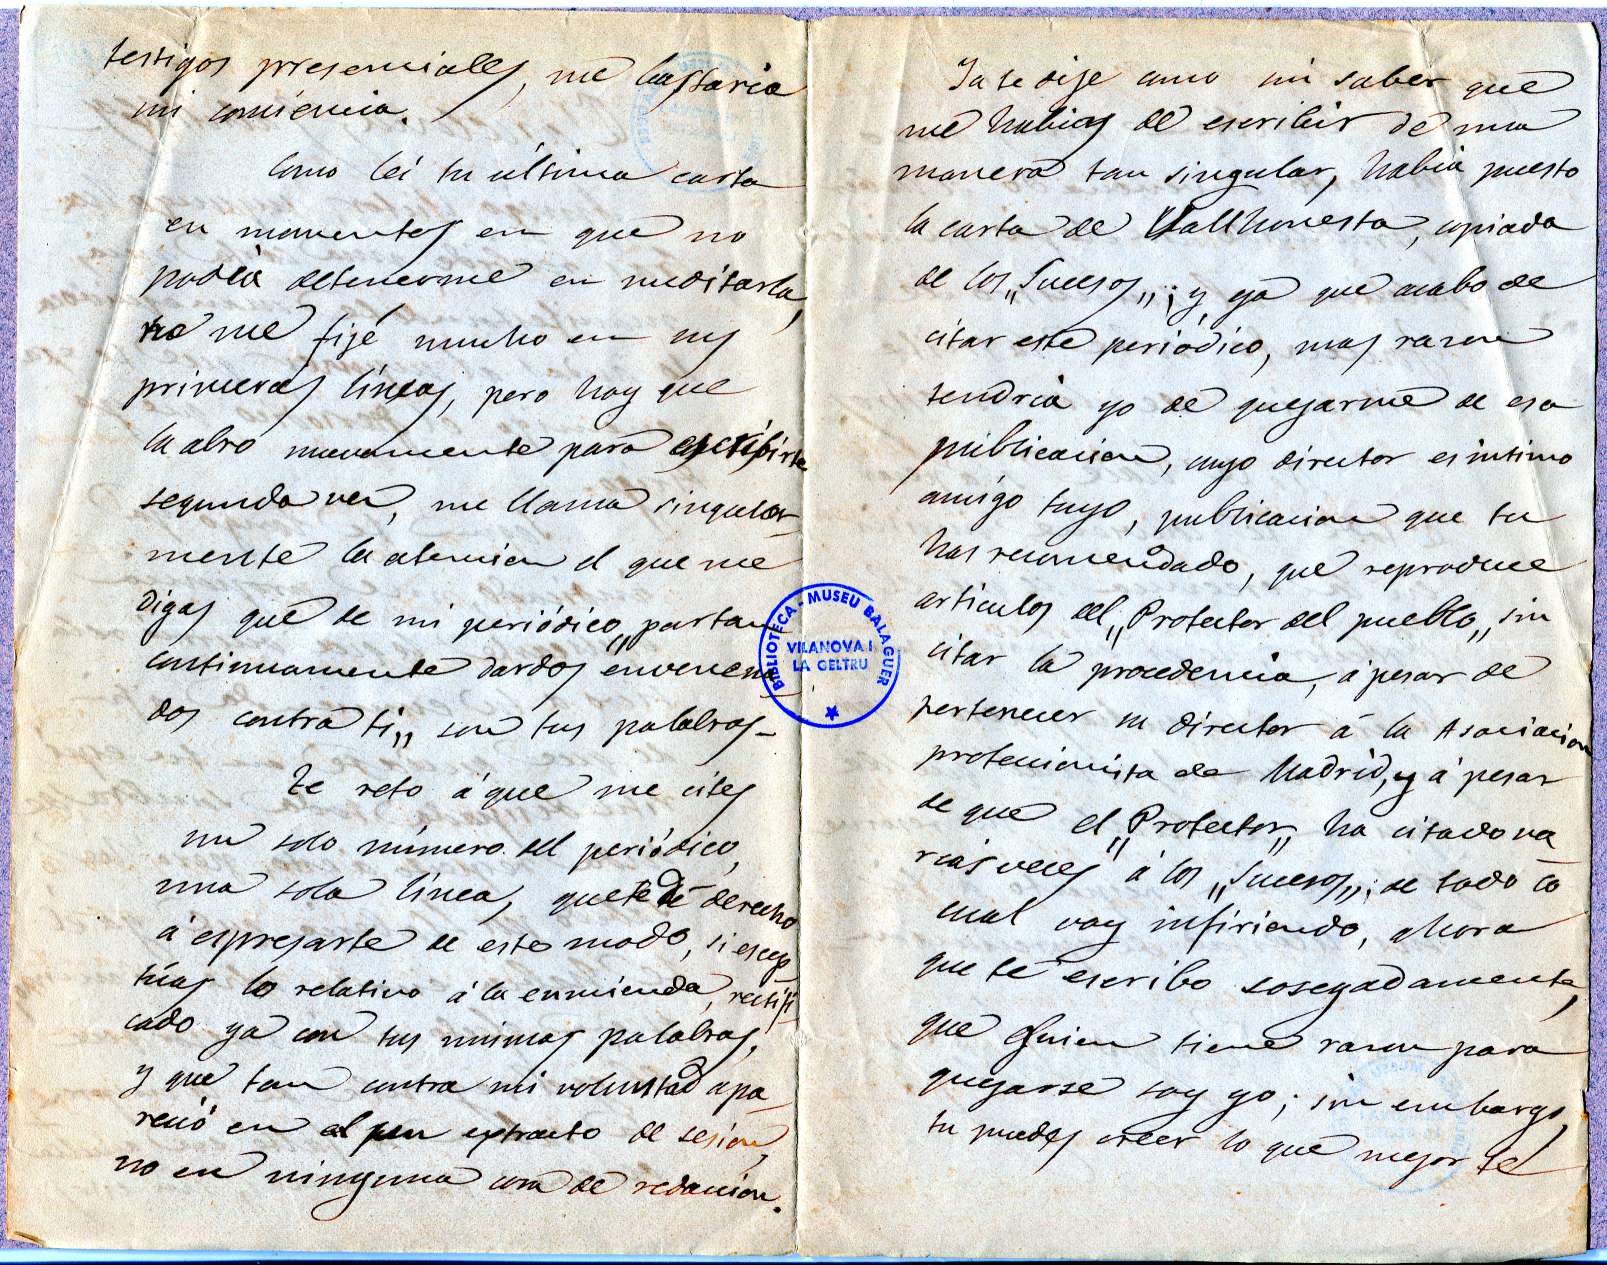 testigos presenciales, me bastaria
mi conciencia.
Como leí tu última carta
en momentos en que no
podia detenerme en meditarla,
no me fijé mucho en sus
primeras líneas, pero hoy que
la abro nuevamente para escribirte
segunda vez, me llama singular-
mente la atencion el que me
digas que de mi periódico „partan
continuamente dardos envenena
dos contra ti„ son tus palabras_
Te reto á que me cites
un solo número del periódico,
una sola línea, que te dé derecho
á espresarte de este modo, si escep
túas lo relativo á la enmienda, rectifi
cado ya con tus mismas palabras,
y que tan contra mi voluntad apa_
reció en el extracto de sesion,
no en ninguna cosa de redaccion.
Ya te dije como sin saber que
me habias de escribir de una
manera tan singular, habia puesto
la carta de Vallhonesta, copiada
de los „Sucesos„; y ya que acabo de
citar este periódico, mas razon
tendria yo de quejarme de esa
publicacion, cuyo director es intimo
amigo tuyo, publicacion que tu
has recomendado, que reproduce
articulos del „Protector del pueblo„ sin
citar la procedencia, á pesar de
pertenecer su director á la Asociacion
proteccionista de Madrid, y á pesar
de que el „Protector„ ha citado va
rias veces á los „Sucesos„; de todo lo
cual voy infiriendo, ahora
que te escribo sosegadamente,
que quien tiene razon para
quejarse soy yo; sin embargo,
tu puedes creer lo que mejor te
BIBLIOTECA - MUSEU BALAGUER
VILANOVA I
LA GELTRU